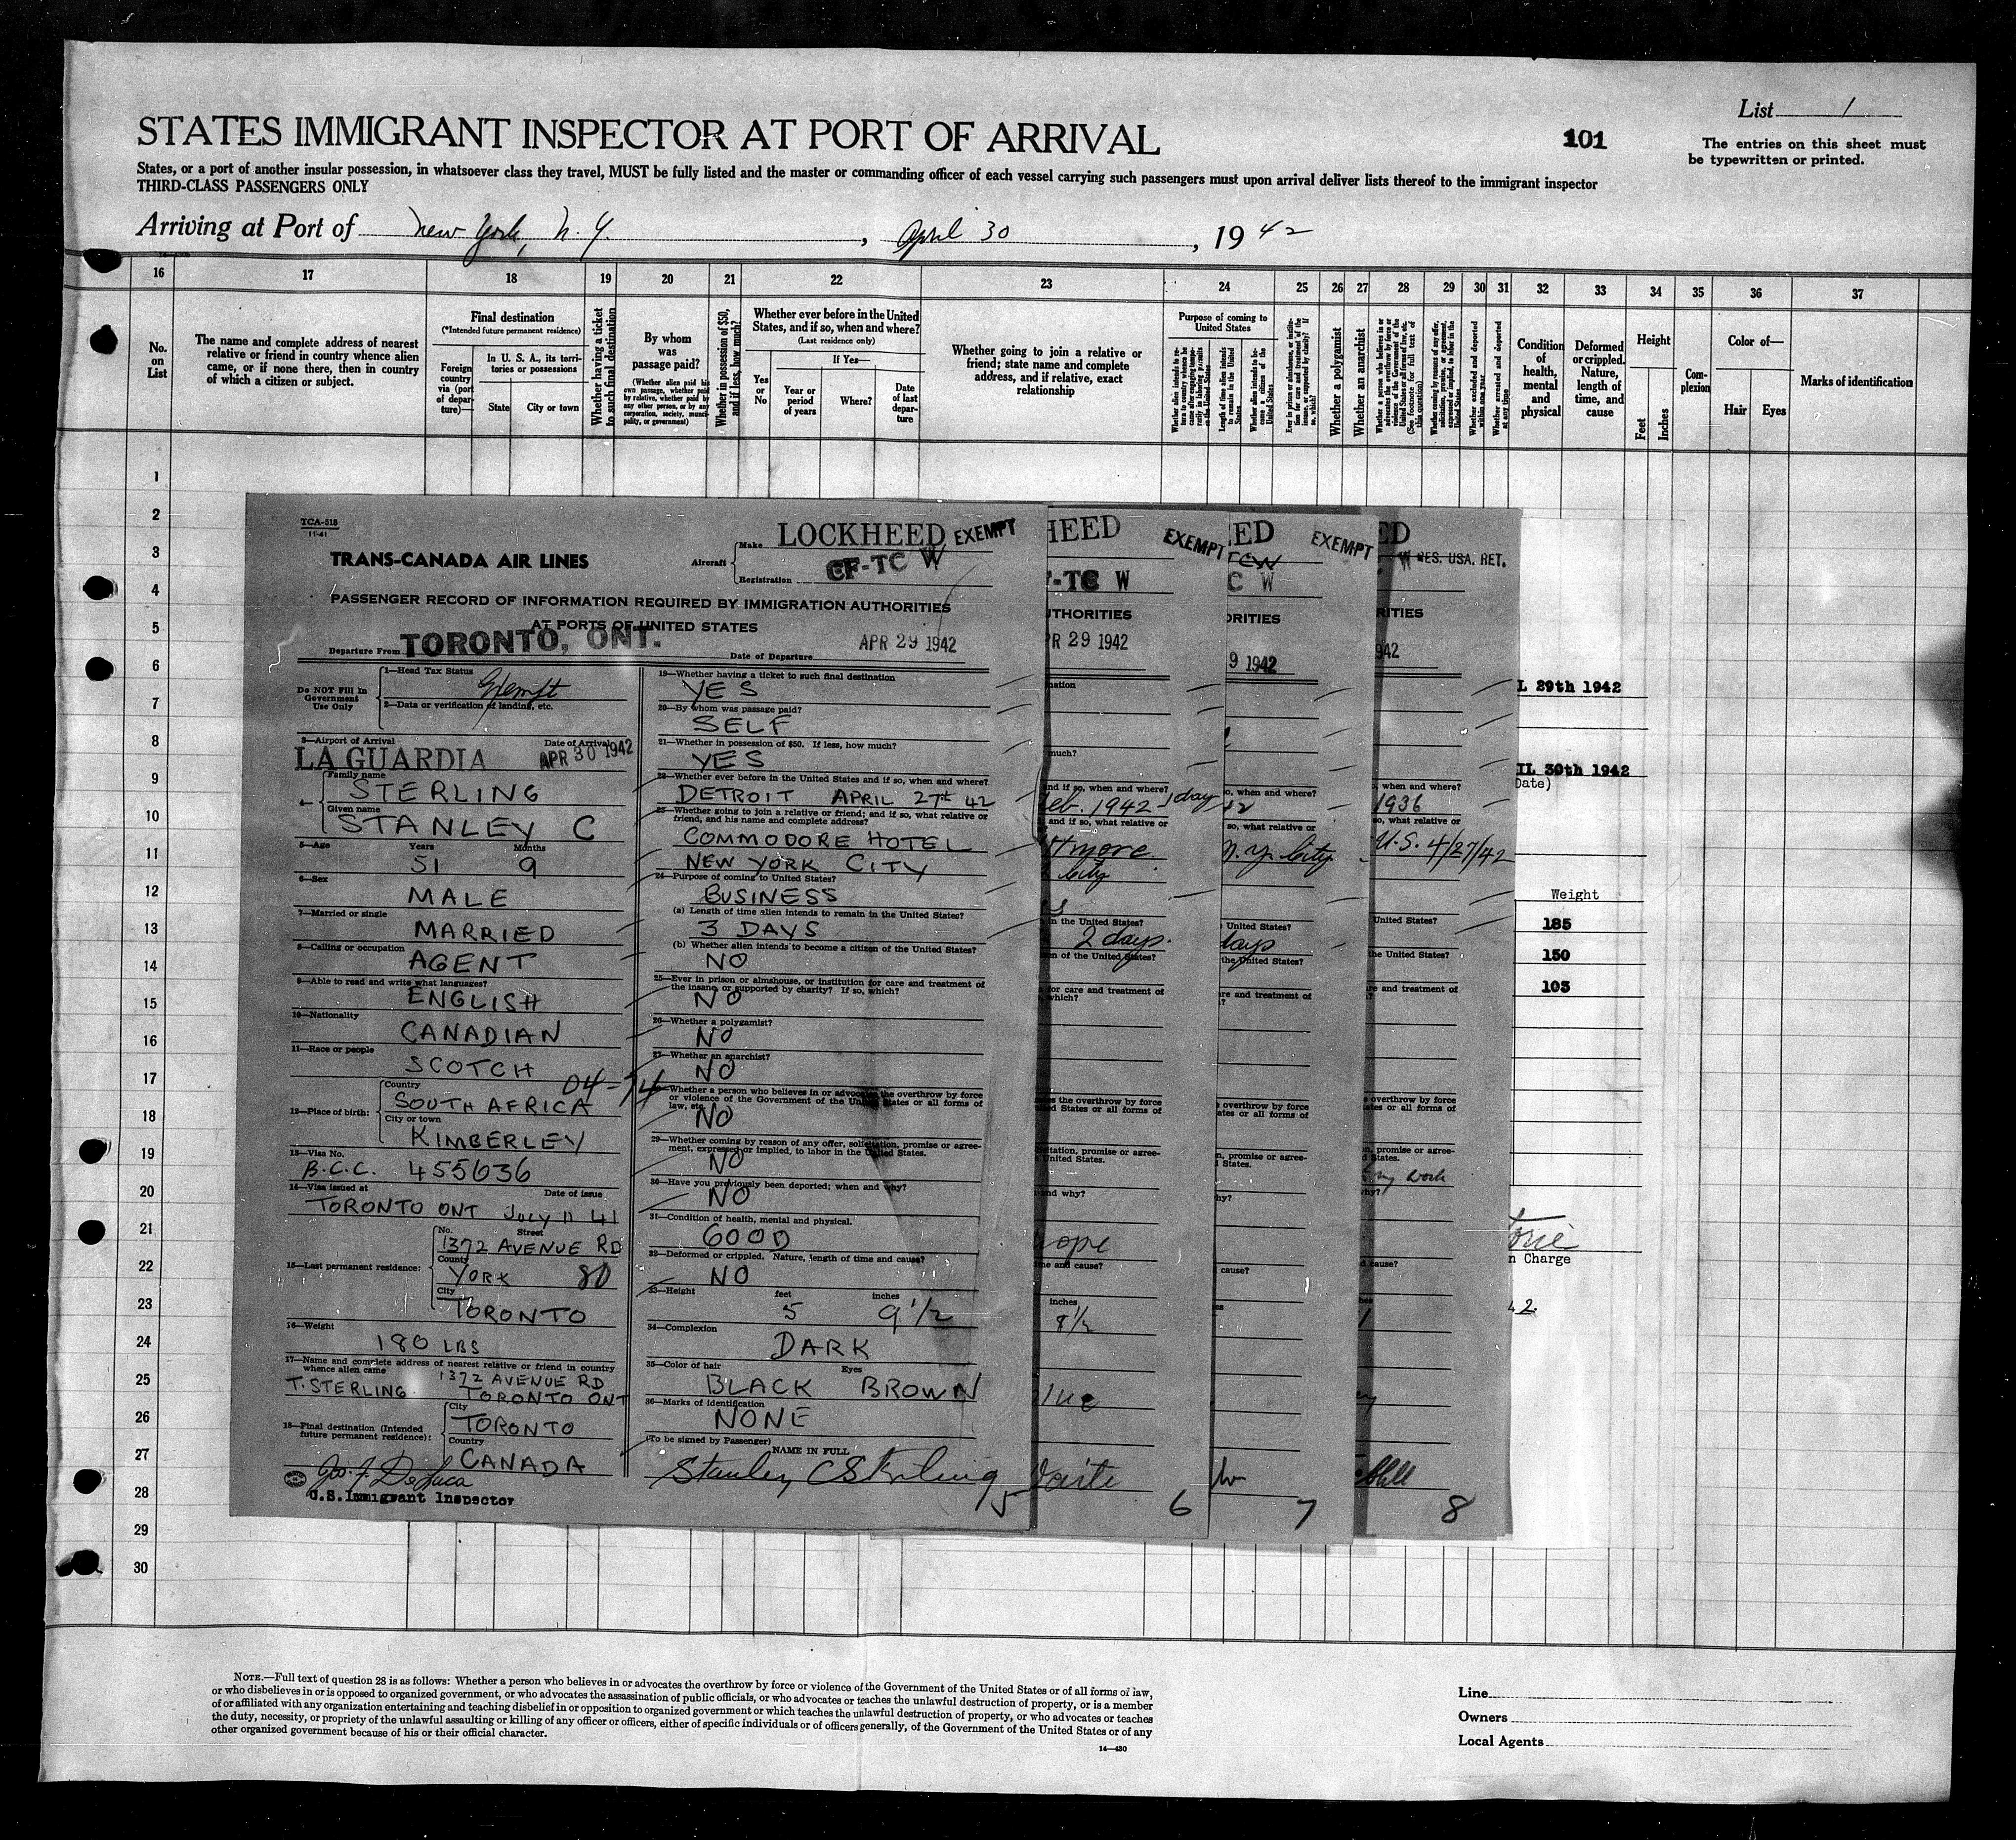 List 1
STATES IMMIGRANT INSPECTOR AT PORT OF ARRIVAL
101
The entries on this sheet must
be typewritten or printed.
States, or a port of another insular possession, in whatsoever class they travel, MUST be fully listed and the master or commanding officer of each vessel carrying such passengers must upon arrival deliver lists thereof to the immigrant inspector
THIRD-CLASS PASSENGERS ONLY
Arriving at Port of New York, N. Y. , April 30 , 19 42
16 17 18 19 20 21 22 23 24 25 26 27 28 29 30 31 32 33 34 35 36 37
No.
on
List
The name and complete address of nearest
relative or friend in country whence alien
came, or if none there, then in country
of which a citizen or subject.
Final destination
(*Intended future permanent residence)
Foreign
country
via (port
of depar-
ture)—
In U. S. A., its terri-
tories or possessions
State
City or town
Whether having a ticket
to such final destination
By whom
was
passage paid?
(Whether alien paid his
own passage, whether paid
by relative, whether paid by
any other person, or by any
corporation, society, munici-
pality, or government)
Whether in possession of $50,
and if less, how much?
Whether ever before in the United
States, and if so, when and where?
(Last residence only)
Yes
or
No
If Yes—
Year or
period
of years
Where?
Date
of last
depar-
ture
Whether going to join a relative or
friend; state name and complete
address, and if relative, exact
relationship
Purpose of coming to
United States
Whether a polygamist
Whether an anarchist
Condition
of
health,
mental
and
physical
Deformed
or crippled.
Nature,
length of
time, and
cause
Height
Feet
Inches
Com-
plexion
Color of—
Hair
Eyes
Marks of identification
1
2
3
4
5
6
7
8
9
10
11
12
13
14
15
16
17
18
19
20
21
22
23
24
25
26
27
28
29
30
TCA-518
11-41
TRANS-CANADA AIR LINES
Aircraft
Make LOCKHEED EXEMPT
Registration CF-TC W
PASSENGER RECORD OF INFORMATION REQUIRED BY IMMIGRATION AUTHORITIES
AT PORTS OF UNITED STATES
Departure From TORONTO, ONT. Date of Departure APR 29 1942
Do NOT Fill in
Government
Use Only
1—Head Tax Status
Exempt
2—Data or verification of landing, etc.
3—Airport of Arrival Date of Arrival
LA GUARDIA APR 30 1942
4— Family name
STERLING
Given name
STANLEY C
5—Age Years Months
51 9
6—Sex
MALE
7—Married or single
MARRIED
8—Calling or occupation
AGENT
9—Able to read and write what languages?
ENGLISH
10—Nationality
CANADIAN
11—Race or people
SCOTCH 04-74
12—Place of birth: Country
SOUTH AFRICA
City or town
KIMBERLEY
13—Visa No.
B.C.C. 455636
14—Visa issued at Date of issue
TORONTO ONT JULY 11 41
15—Last permanent residence:
No. Street
1372 AVENUE RD
County
YORK 80
City
TORONTO
16—Weight
180 LBS
17—Name and complete address of nearest relative or friend in country
whence alien came
1372 AVENUE RD
T. STERLING TORONTO ONT
18—Final destination (Intended
future permanent residence):
City
TORONTO
Country
CANADA
U.S. Immigrant Inspector
19—Whether having a ticket to such final destination
YES
20—By whom was passage paid?
SELF
21—Whether in possession of $50. If less, how much?
YES
22—Whether ever before in the United States and if so, when and where?
DETROIT APRIL 27th 42
23—Whether going to join a relative or friend; and if so, what relative or
friend, and his name and complete address?
COMMODORE HOTEL
NEW YORK CITY
24—Purpose of coming to United States?
BUSINESS
(a) Length of time alien intends to remain in the United States?
3 DAYS
(b) Whether alien intends to become a citizen of the United States?
NO
25—Ever in prison or almshouse, or institution for care and treatment of
the insane, or supported by charity? If so, which?
NO
26—Whether a polygamist?
NO
27—Whether an anarchist?
NO
Whether a person who believes in or advocates the overthrow by force
or violence of the Government of the United States or all forms of
law, etc.
NO
29—Whether coming by reason of any offer, solicitation, promise or agree-
ment, expressed or implied, to labor in the United States.
NO
30—Have you previously been deported; when and why?
NO
31—Condition of health, mental and physical.
GOOD
32—Deformed or crippled. Nature, length of time and cause?
NO
33—Height feet inches
5 9 1/2
34—Complexion
DARK
35—Color of hair Eyes
BLACK BROWN
36—Marks of identification
NONE
(To be signed by Passenger) NAME IN FULL
Stanley C Sterling
5
HEED EXEMPT
F-TC W
THORITIES
R 29 1942
nation
much?
and if so, when and where?
eb. 1942 1 day
and if so, what relative or
tmore
City
in the United States?
2 days.
en of the United States?
for care and treatment of
which?
s the overthrow by force
ed States or all forms of
itation, promise or agree-
United States.
and why?
me and cause?
inches
8 1/2
6
ED EXEMPT
C W
ORITIES
9 1942
o, when and where?
so, what relative or
N.Y. City
United States?
days
the United States?
re and treatment of
overthrow by force
ates or all forms of
n, promise or agree-
States.
hy?
cause?
7
ED
W RES. USA. RET.
RITIES
942
o, when and where?
1936
so, what relative or
U.S. 4/27/42
United States?
the United States?
e and treatment of
overthrow by force
ates or all forms of
n, promise or agree-
d States.
my work
hy?
cause?
8
L 29th 1942
IL 30th 1942
Date)
Weight
185
150
103
n Charge
42
NOTE.—Full text of question 28 is as follows: Whether a person who believes in or advocates the overthrow by force or violence of the Government of the United States or of all forms of law,
or who disbelieves in or is opposed to organized government, or who advocates the assassination of public officials, or who advocates or teaches the unlawful destruction of property, or is a member
of or affiliated with any organization entertaining and teaching disbelief in or opposition to organized government or which teaches the unlawful destruction of property, or who advocates or teaches
the duty, necessity, or propriety of the unlawful assaulting or killing of any officer or officers, either of specific individuals or of officers generally, of the Government of the United States or of any
other organized government because of his or their official character.
14—430
Line
Owners
Local Agents